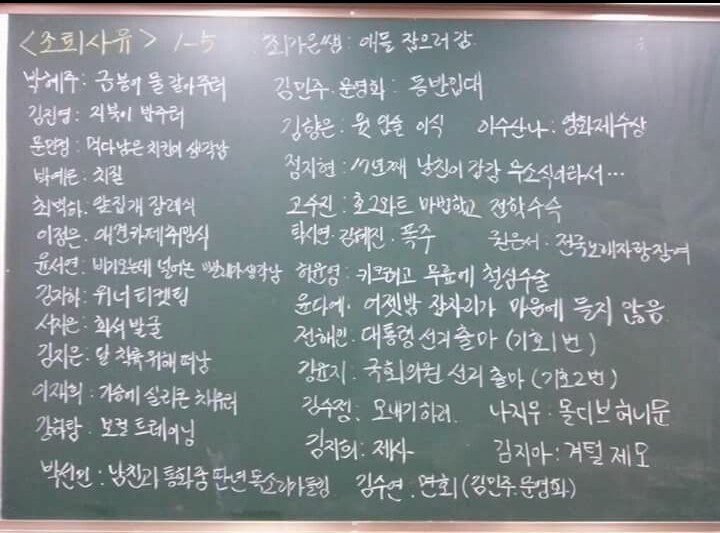 <조퇴사유> 1-5
최가은쌤 : 애들 잡으러 감
박혜주 : 금붕어 물 갈아주러
김진영 : 거북이 밥주러
문민정 : 먹다남은 치킨이 생각남
박예은 : 치질
최벽하 : 앞집개 장례식
이정은 : 애견카페취임식
윤서연 : 비가오는데 널어논 빨래가 생각남
김자하 : 위너 티켓팅
서지은 : 화석 발굴
김지은 : 달 착륙 위해 떠남
이재희 : 가슴에 실리콘 채우러
김하랑 : 보컬 트레이닝
박선민 : 남친과 통화중 딴년 목소리가 들림
김민주. 문영화 : 동반입대
김향은 : 윗 입술 이식
이수산나 : 영화제수상
정지현 : 17년째 남친이 감감 무소식이라서…
고수진 : 호그와트 마법학교 전학수속
탁시연. 김혜진. 폭주
권은서 : 전국노래자랑참여
허윤영 : 키크려고 무릎에 철심수술
윤다예. 어젯밤 잠자리가 마음에 들지 않음
전해인 : 대통령 선거 출마 (기호1번)
강윤지 : 국회의원 선거 출마 (기호2번)
김수정 : 모내기하러.
나지우 : 몰디브 허니문
김지희 : 제사
김지아 : 겨털 제모
김수연 : 면회 (김민주. 문영화)